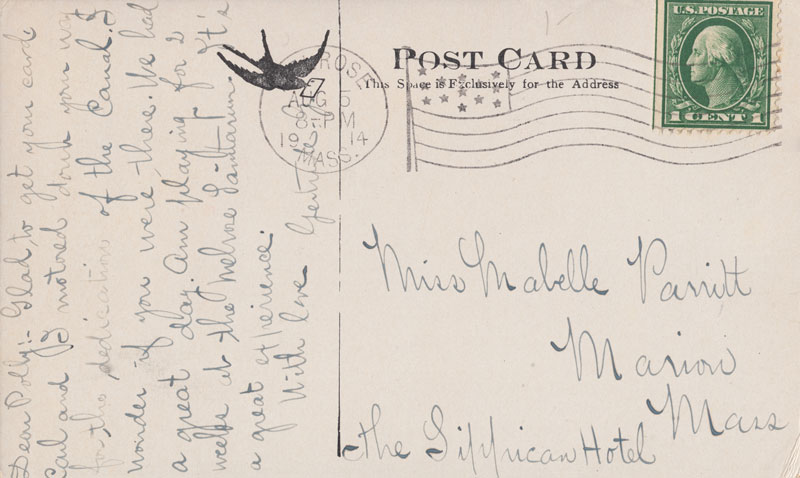 Dear Polly:- Glad to get your card.
Carl and I motored down your way
for the dedication of the Canal. I
wonder if you were there. We had
a great day. Am playing for 2
weeks at the Melrose Sanitarium. It's
a great experience.
With love
Gertrude
POST CARD
This Space is Exclusively for the Address
ROSE
AUG 5
8 PM
19 14
MASS.
U.S. POSTAGE
1 CENT 1
Miss Mabelle Parritt
Marion
Mass
The Sippican Hotel